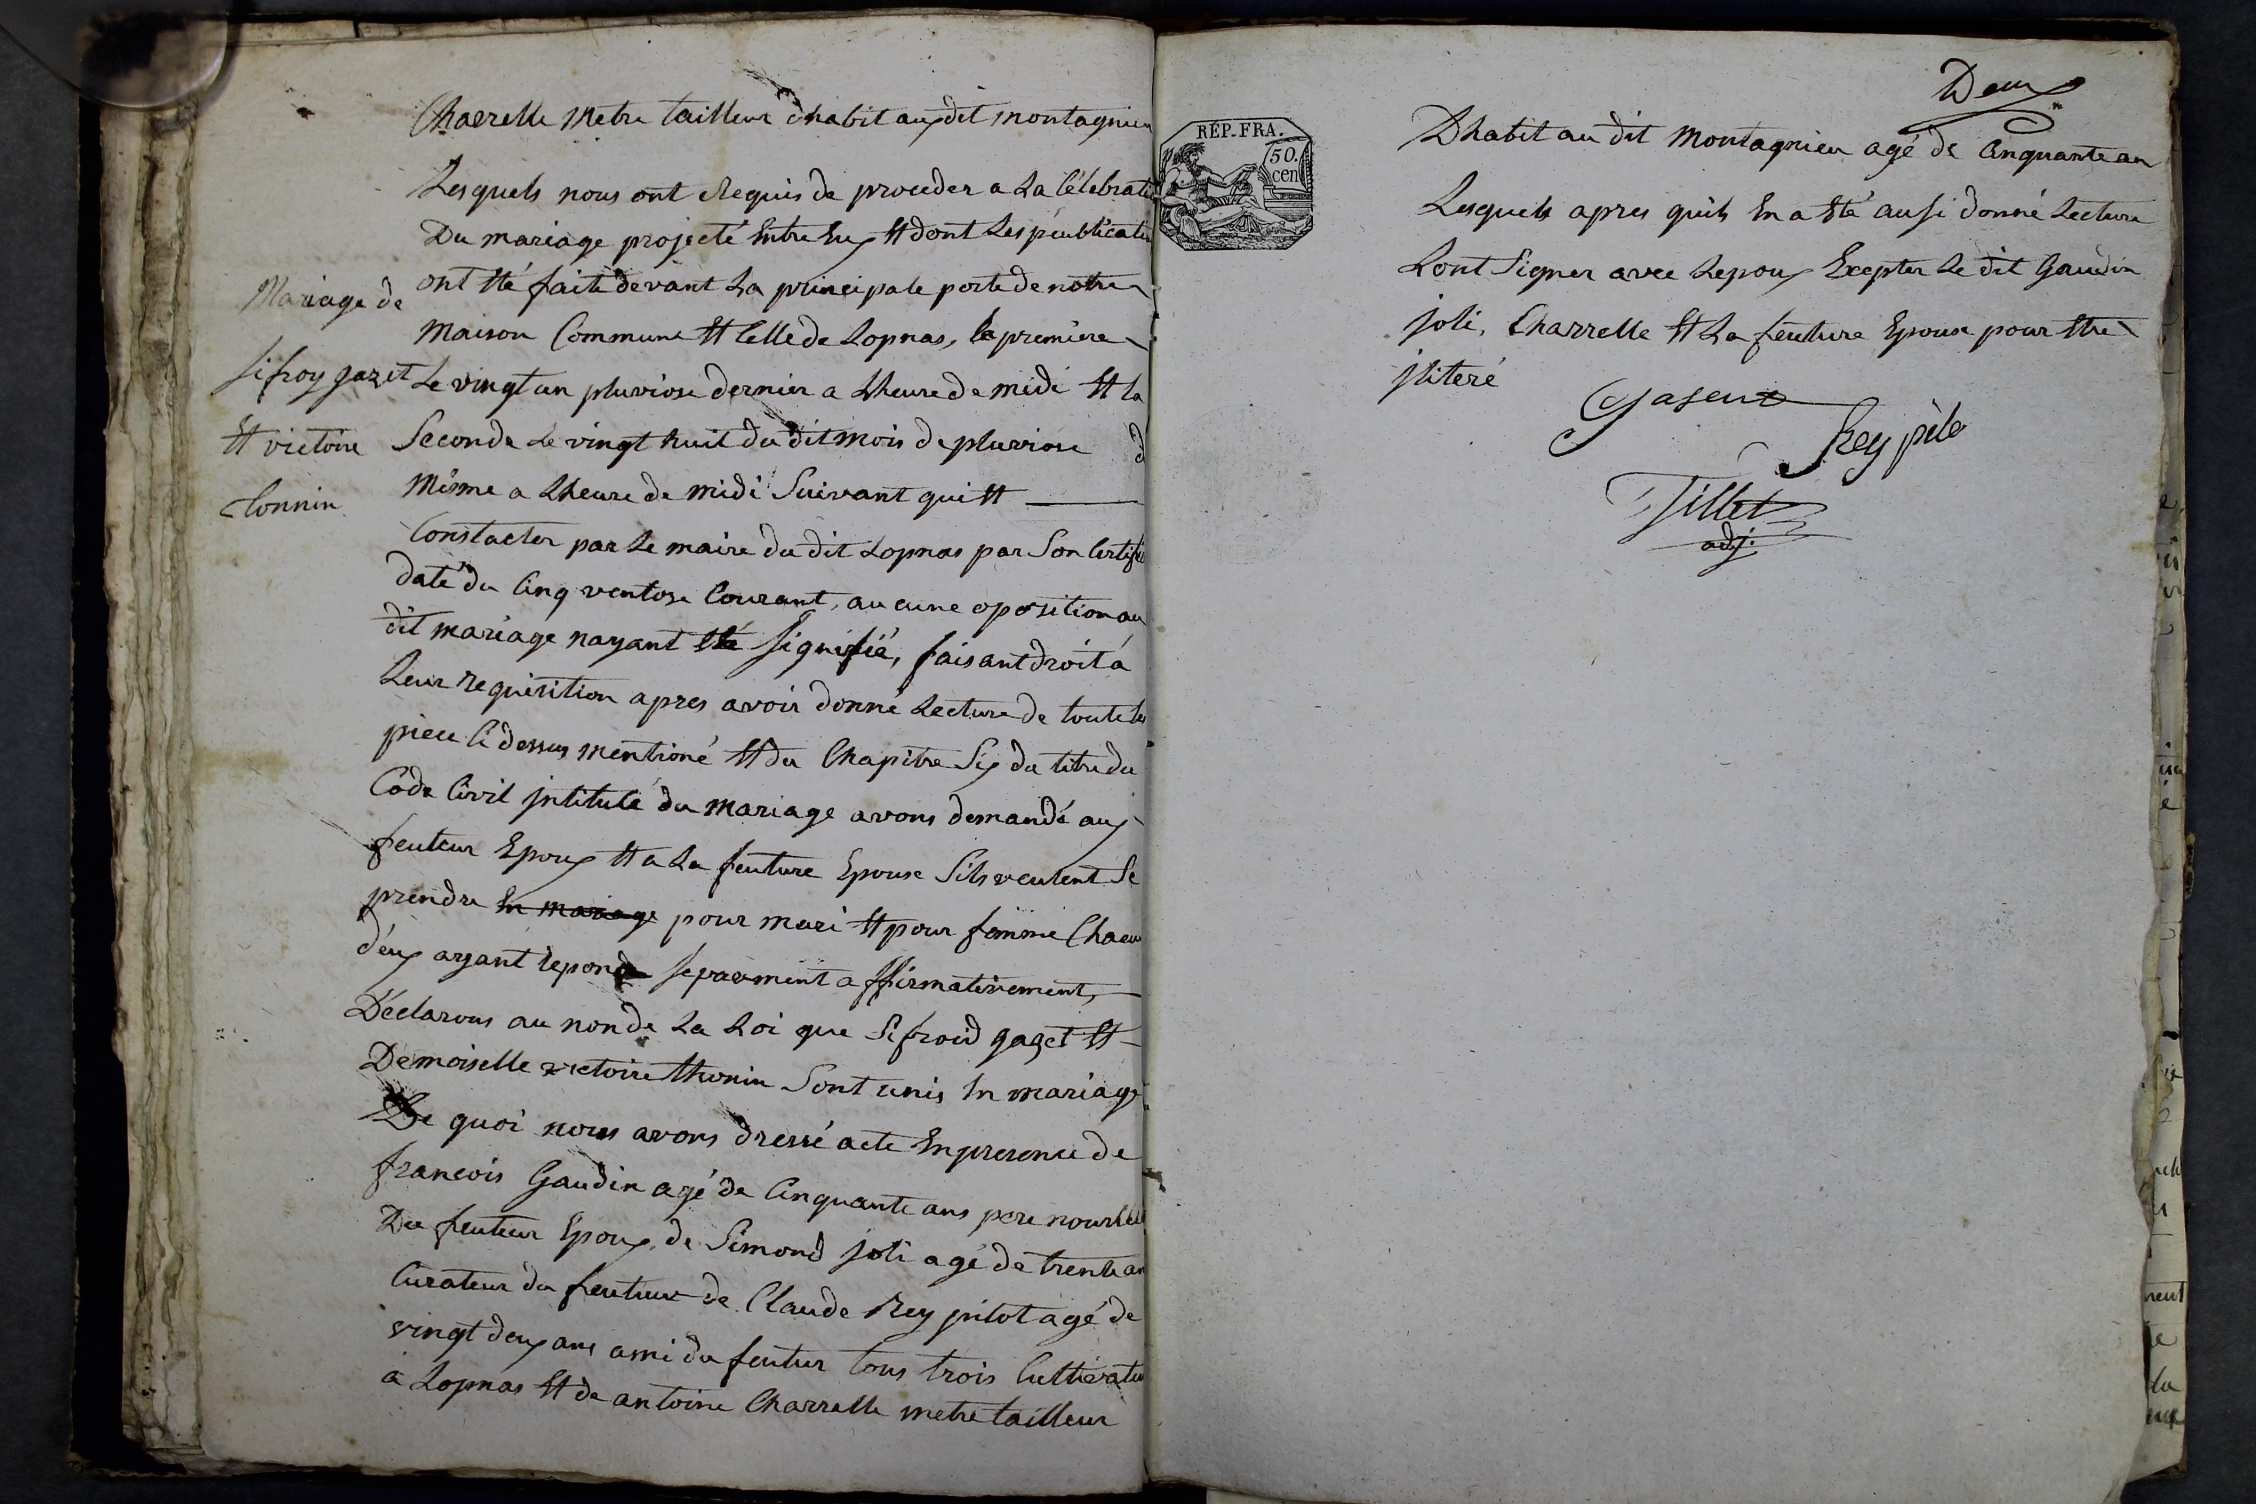 Charrelle Metre tailleur dhabit auxdit montagnieu
Lesquels nous ont Requis de proceder a La Célebrati
Du mariage projecté Entre Eux Et dont Les peublicatio
ont Eté faite devant La principale porte de notre
Maison Commune Et Celle de Lopnas, la premiere
Le vingt un pluviose dernier a Lheure de midi Et la
Seconde Le vingt huit du dit mois de pluviose
Même a Lheure de midi Suivant qui Et
Constacter par Le maire du dit Lopnas par Son Certifi
daté du Cinq ventose Courant, aucune oposition au
dit mariage nayant Eté Signifié, faisant droit á
Leur requisition apres avoir donné Lecture de toute les
piece Ci dessus mentioné Et du Chapitre Six du titre du
Code Civil jntitulé du mariage avons demandé aux
feuteur Epoux Et a La feuture Epouse Sils veulent Se
prendre En mariage pour mari Et pour femme Chacun
d'eux ayant repondu separment affirmativement,
Déclarons au non de La Loi que Sifroid gazet Et
Demoiselle victoire thonin Sont unis En mariage
De quoi nous avons dressé acte En presence de
francois Gaudin agé de Cinquante ans pere nour
Du feuteur Epoux, de Simond joli agé de trente an
Curateur du feuteur de Claude Rey pilot agé de
vingt deux ans ami du feutur tous trois Cultivateu
a Lopnas Et de antoine Charrelle metre tailleur
Mariage de
Sifroy gazet
Et victoire
tonnin
Deux
REP. FRA.
50.
cen
Dhabit au dit Montagnieu agé de Cinquante an
Lesquels apres quils En a Eté ausi donné Lecture
Lont Signer avec Lepoux Exepter Le dit Gaudin
joli, Charrelle Et La feuture Epouse pour Etre
jliteré
Rey pilo
Tillet
adj.